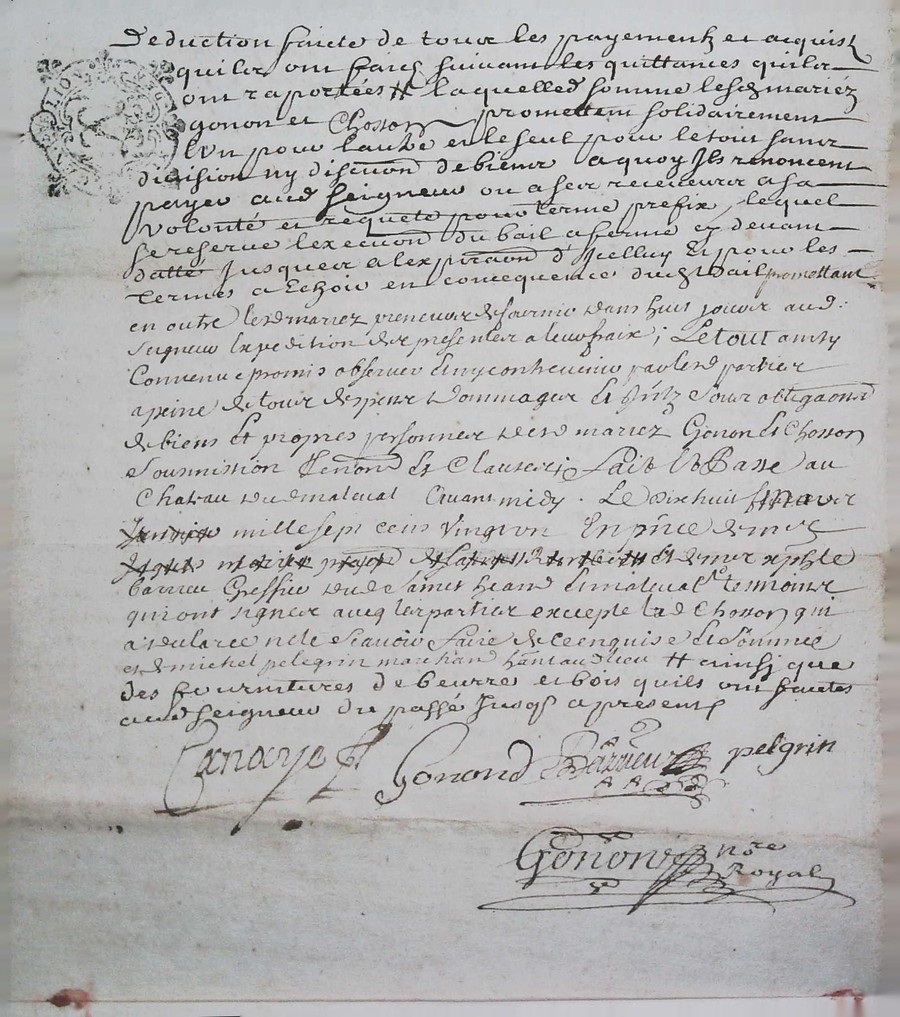 Deduction faicte de tous les payements et acquist
quilz ont faicz suivant les quittances quilz
ont raportées # laquelled somme lesd mariéz
gonon et Chosson promettent solidairement
lun pour lautre et le seul pour le tout sans
division ny discution de biens a quoy Ils renoncent
payer aud Seigneur ou a ses receveurs a sa
volonté et requete pour terme prefix, lequel
se reserve lexecution du bail a ferme cy devant
datté Jusques a lexpiraon d'Icelluy Et pour les
termes a Echoir en consequence dud bail promettant
en outre lesd mariez preneurs de fournir dans huit jours aud :
Seigneur Expedition des presentes a leur fraix ; Le tout ainsy
Convenu promis observer par lesd parties
a peine de tous despens dommages Et Intz Sous obligaons
de biens Et propres personnes desd mariez Gonon Et Chosson
Soumission Renons Et Clauses ; Fait Et Passé au
Chateau dud malval avant midy . Le dixhuit
mille sept cens vingt un En pnce de mre
Et de mre
barrieu Greffier dud Saint heand Et malval temoins
qui ont signez avec les parties excepté lad Chosson qui
a declaree ne le Scavoir faire de ce enquise Et Sommee
et de michel pelegrin marchand hant aud lieu # ainsy que
des fournitures de beurre et bois quils ont faictes
aud Seigneur du passé Jusqs a present
Canaye Gonond Barrieu pelgrin
Gonon nore
Royal